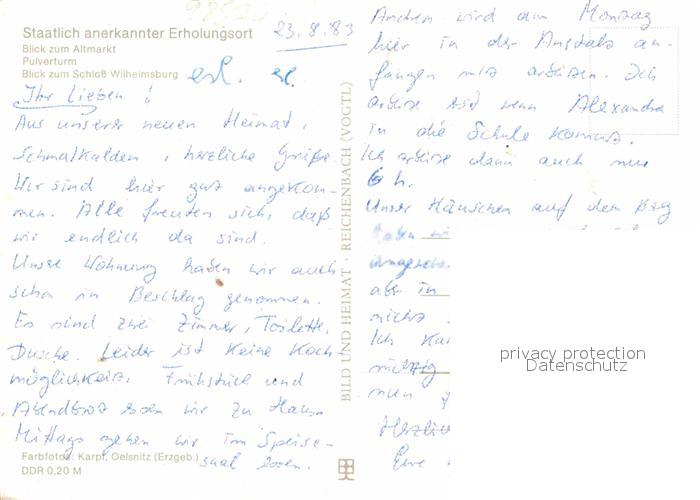 Staatlich anerkannter Erholungsort
Blick zum Altmarkt
Pulverturm
Blick zum Schloß Wilhelmsburg
23.8.83
erl. erl.
Ihr Lieben!
Aus unserer neuen Heimat,
Schmalkalden, herzliche Grüße
Wir sind hier gut angekom-
men. Alle freuten sich, daß
wir endlich da sind.
Unse Wohnung haben wir auch
schon in Beschlag genommen.
Es sind zwei Zimmer, Toilette,
Dusche. Leider ist keine Koch-
möglichkeit. Frühstück und
Abendbrot essen wir zu Haus
Mittags gehen wir im Speise-
saal essen.
Farbfotos: Karpf, Oelsnitz (Erzgeb.)
DDR 0,20 M
BILD UND HEIMAT · REICHENBACH (VOGTL)
wird am Montag
hier in der Anstalt an-
fangen mit arbeiten. Ich
arbeite erst wenn Alexandra
in die Schule kommt.
Ich arbeite dann auch nur
6 h.
Unser Häuschen auf dem Berg
haben
aber in
nichts
Ich
nun
Eure
privacy protection
Datenschutz